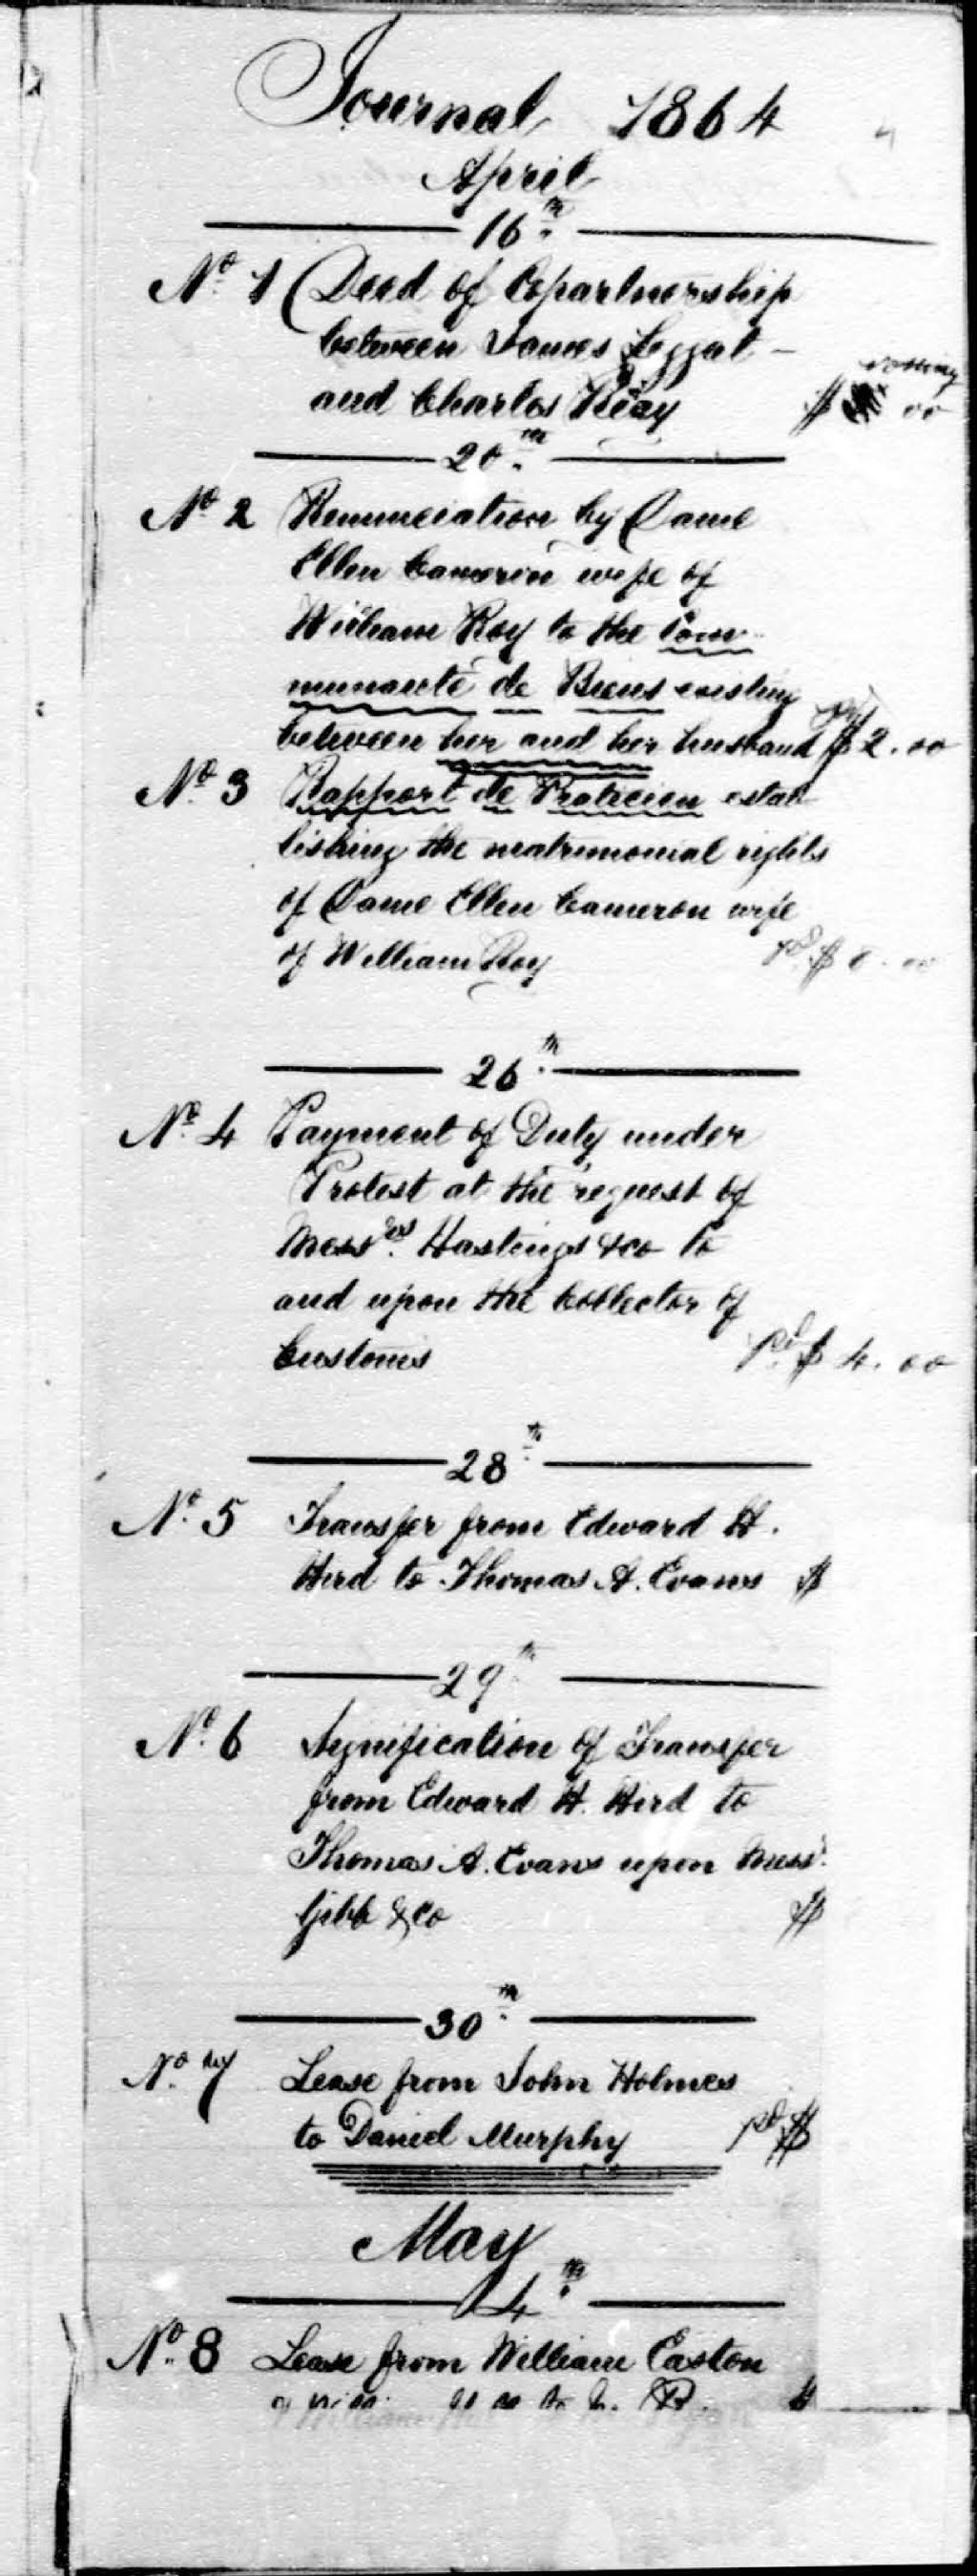 Journal 1864
April
16th
No 1 Deed of Copartnership
between James Leggat -
and Charles Reay $ 00
20th
No 2 Renunciation by Dame
Ellen Cameron wife of
William Roy to the Com-
munauté de Biens existing
between her and her husband pd $ 2.00
No 3 Rapport de Praticien estab
lishing the matrimonial rights
of Dame Ellen Cameron wife
of William Roy pd $ 8.00
26th
No 4 Payment of Duty under
Protest at the request of
Messrs Hastings &co to
and upon the Collector of
Customs pd $ 4.00
28th
No 5 Transfer from Edward H.
Hird to Thomas A. Evans $
29th
No 6 Signification of Transfer
from Edward H. Hird to
Thomas A. Evans upon Messrs
Gibb & Co $
30th
No 7 Lease from John Holmes
to Daniel Murphy pd $
May
4th
No 8 Lease from William Easton
$